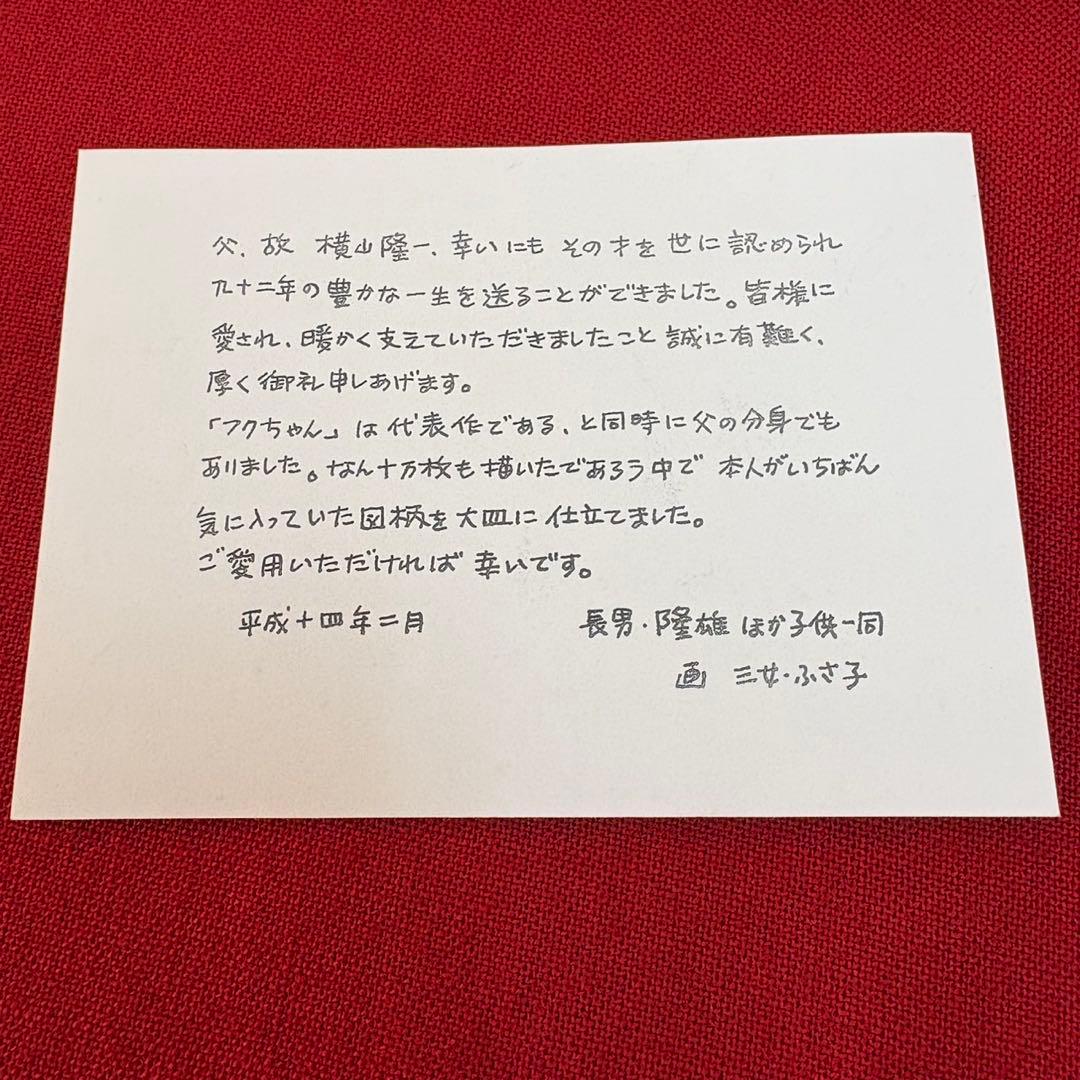 父、故 横山隆一、幸いにも その才を世に認められ
九十二年の豊かな一生を送ることができました。皆様に
愛され、暖かく支えていただきましたこと 誠に有難く、
厚く御礼申しあげます。
「フクちゃん」は代表作である、と同時に父の分身でも
ありました。なん十万枚も描いたであろう中で 本人がいちばん
気に入っていた図柄を大皿に仕立てました。
ご愛用いただければ幸いです。
平成十四年二月
長男・隆雄 ほか子供一同
画 三女・ふさ子